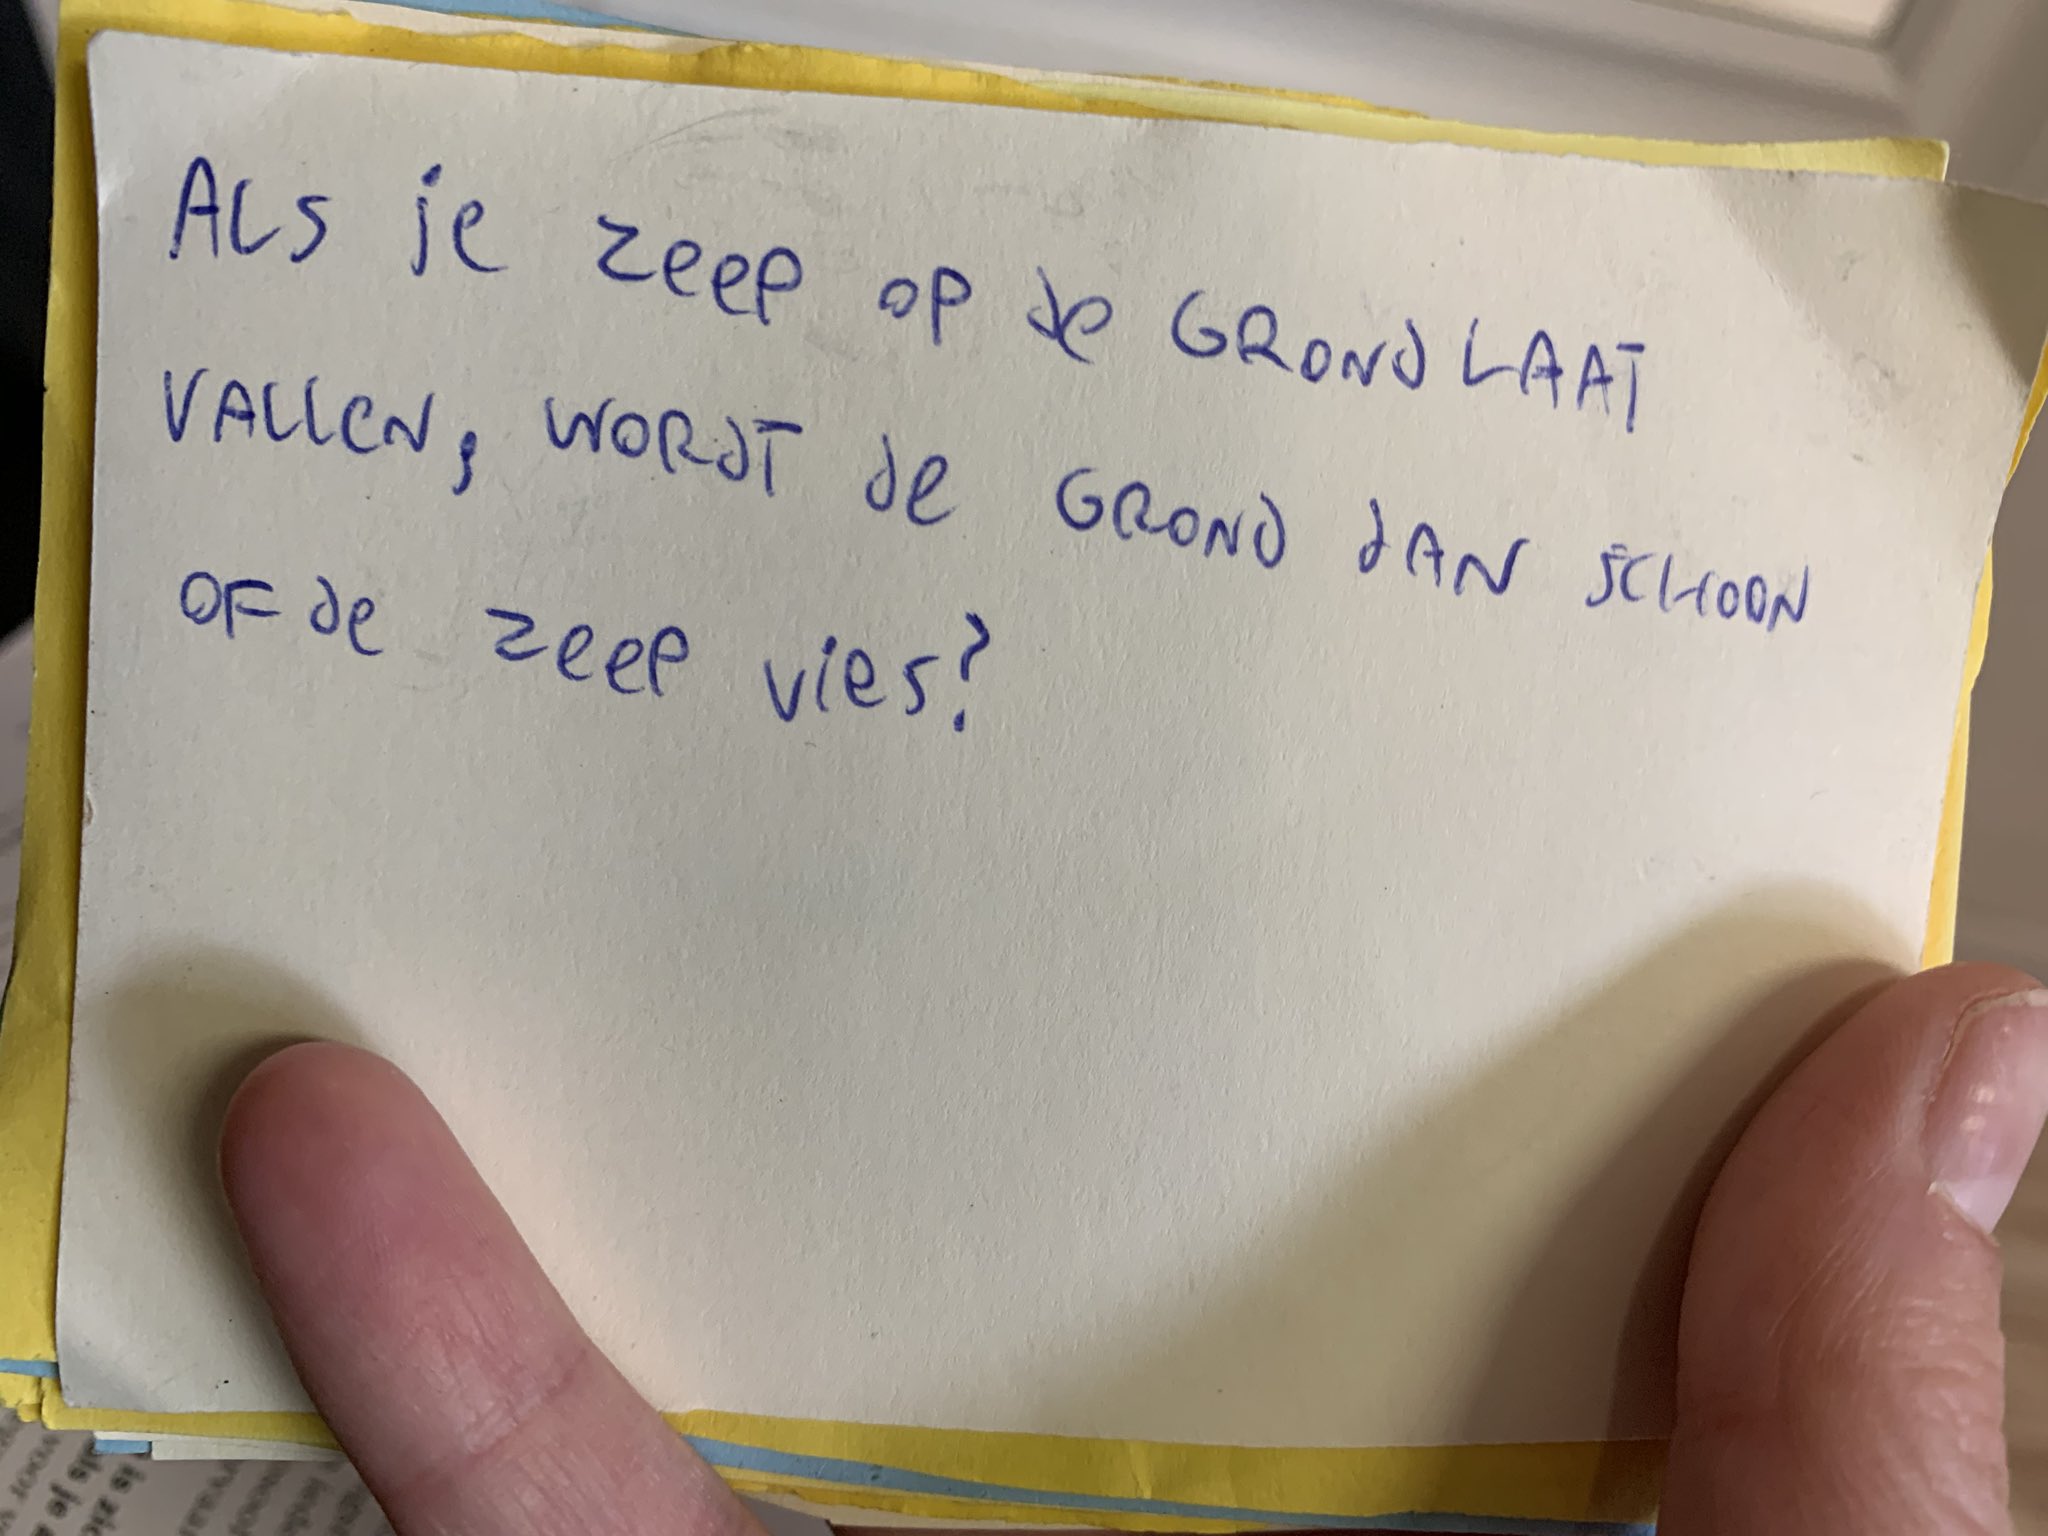 Als je zeep op de grond laat
vallen, wordt de grond dan schoon
of de zeep vies?